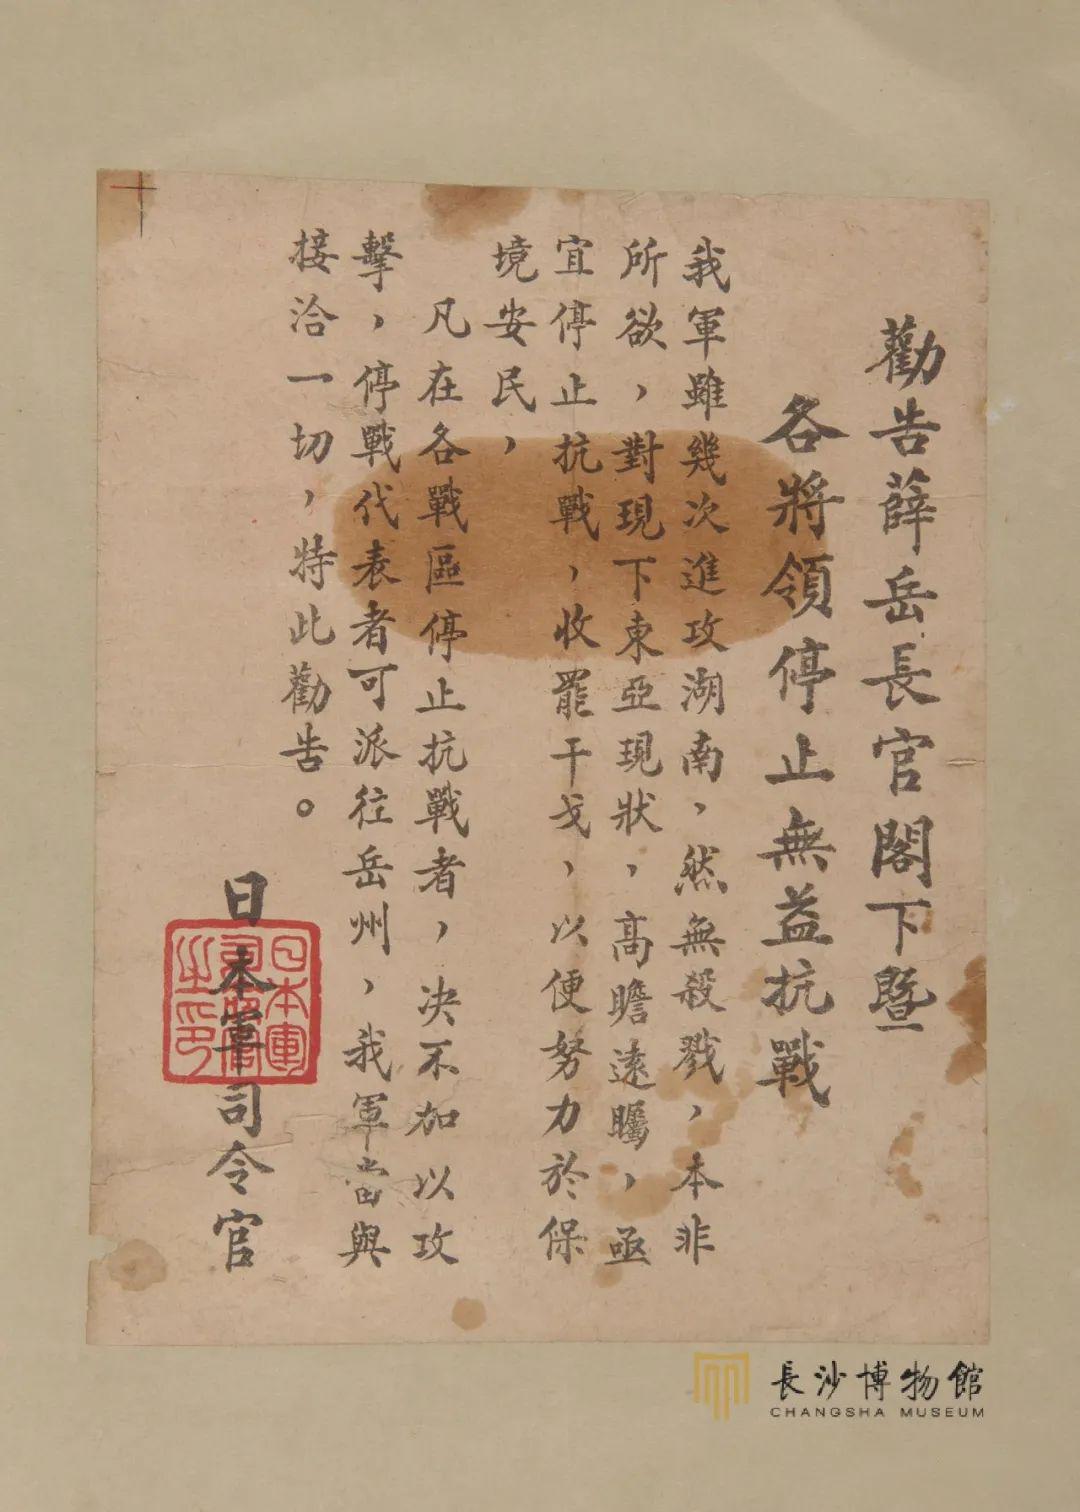 勸告薛岳長官閣下暨
各將領停止無益抗戰
我軍雖幾次進攻湖南，然無殺戮，本非
所欲，對現下東亞現狀，高瞻遠矚，亟
宜停止抗戰，收罷干戈，以便努力於保
境安民，
凡在各戰區停止抗戰者，決不加以攻
擊，停戰代表者可派往岳州，我軍當與
接洽一切，特此勸告。
日本軍司令官
日本軍
司令官
之印
長沙博物館
CHANGSHA MUSEUM